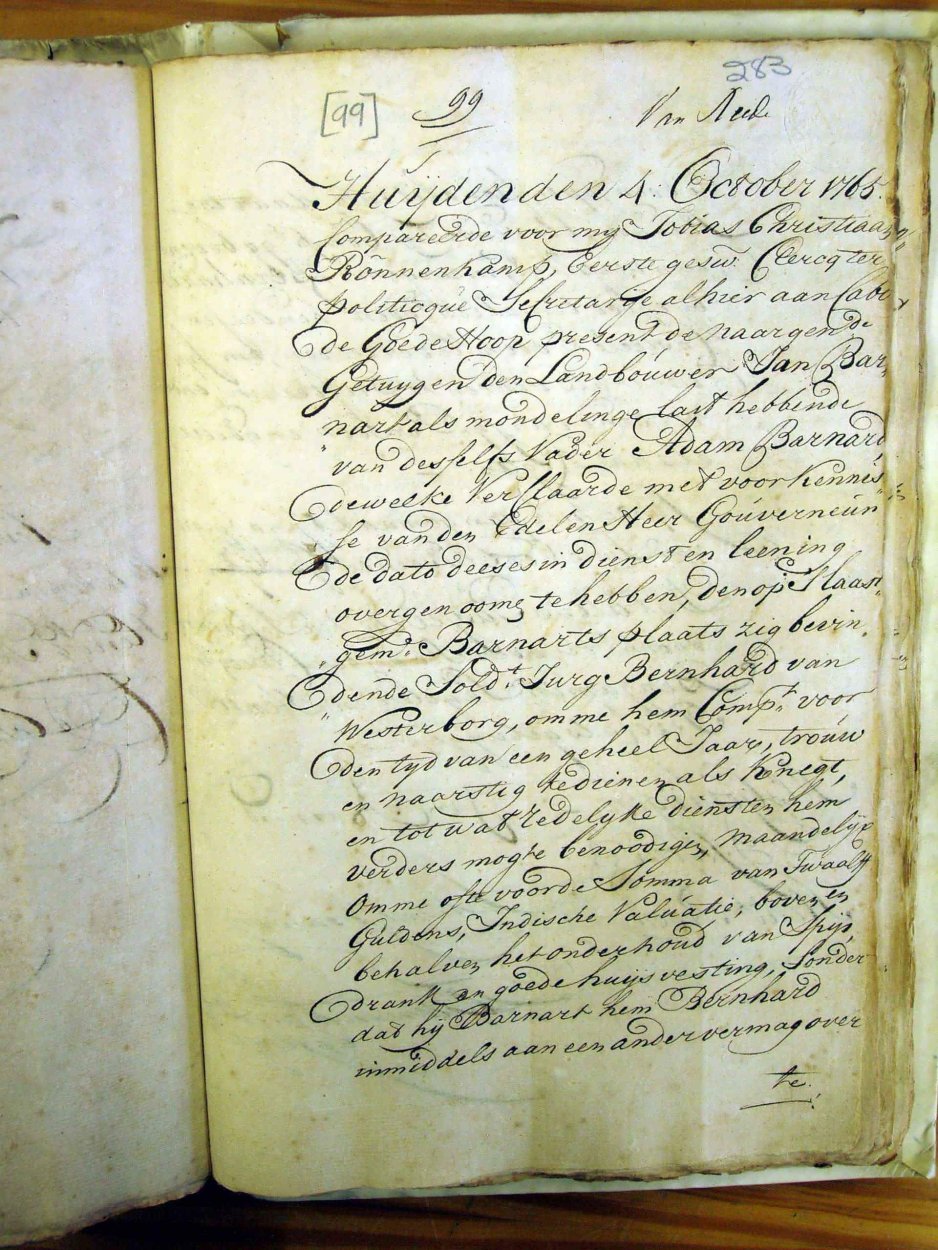 283
[99] 99 Van Reede
Huijden den 4. October 1765.
Compareerde voor mij Tobias Christiaan
Rönnenkamp, Eerste gesw. Clercq ter
politicque Secretarije alhier aan Cabo
de Goede Hoop, present de naargen: de
Getuygen den Landbouwer Jan Bar,,
nart als mondelinge last hebbende
van desselfs Vader Adam Barnard
dewelke Verclaarde met voor kennis,,
se van den Edelen Heer Gouverneur
de dato deeses in dienst en leening
overgenoome te hebben, den op 's laast
gem: Barnarts plaats zig bevin,,
dende Sold:t Jurg Bernhard van
Westerborg, omme hem Comp:t voor
den tyd van een geheel Jaar, trouw
en naarstig te dienen als Knegt,
en tot wat redelyke diensten hem
verders mogte benoodigen, Maandelijx
Omme ofte voor de Somma van Twaalff
Guldens, Indische Valuatie, boven en
behalven het onderhoud van Spijs
drank en goede huijsvesting, Sonder
dat hij Barnart hem Bernhard
inmiddels aan een ander vermag over
te.